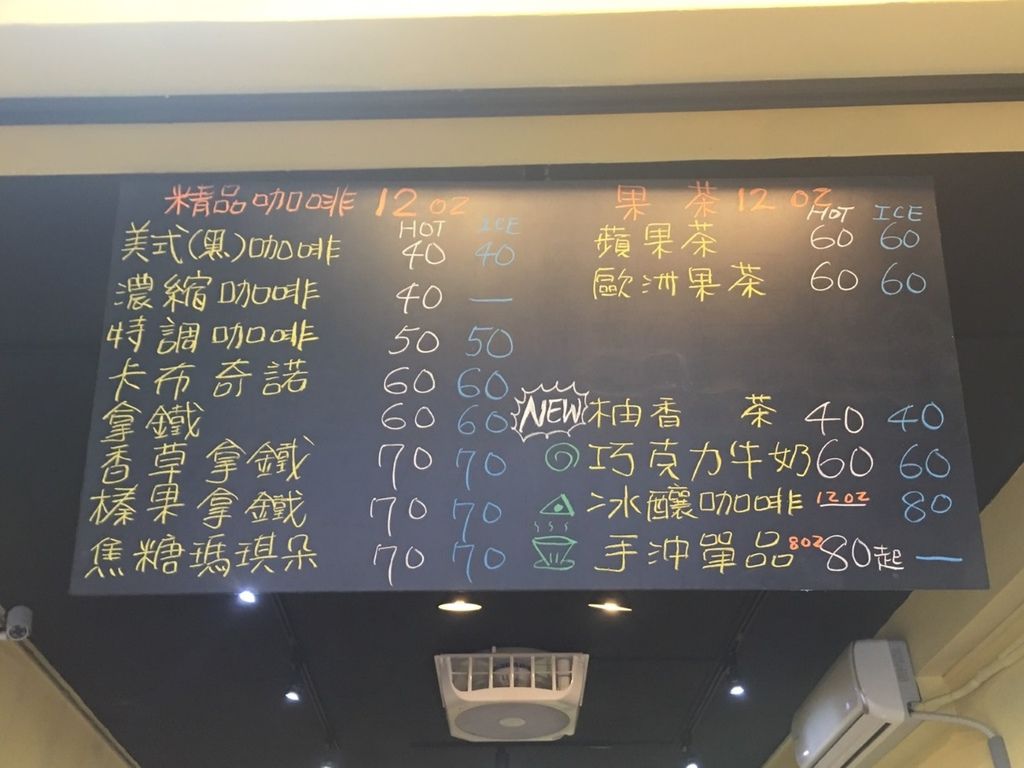 精品咖啡 12 oz
HOT ICE
美式(黑)咖啡 40 40
濃縮咖啡 40 —
特調咖啡 50 50
卡布奇諾 60 60
拿鐵 60 60
香草拿鐵 70 70
榛果拿鐵 70 70
焦糖瑪琪朵 70 70
果茶 12 oz
HOT ICE
蘋果茶 60 60
歐洲果茶 60 60
NEW 柚香茶 40 40
巧克力牛奶 60 60
冰釀咖啡 12oz 80
手沖單品 8oz 80起 —